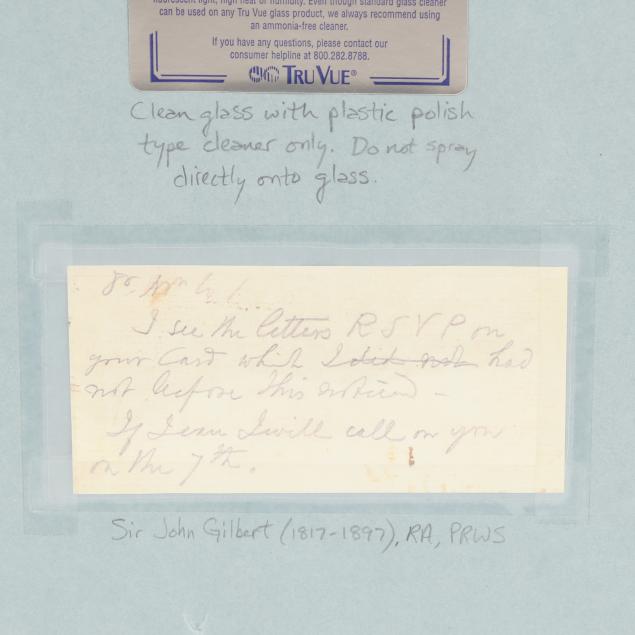 fluorescent light, high heat or humidity. Even though standard glass cleaner
can be used on any Tru Vue glass product, we always recommend using
an ammonia-free cleaner.
If you have any questions, please contact our
consumer helpline at 800.282.8788.
TRU VUE®
Clean glass with plastic polish
type cleaner only. Do not spray
directly onto glass.
I see the letters R S V P on
your Card which I did not had
not before this noticed –
If I can I will call on you
on the 7th.
Sir John Gilbert (1817-1897), RA, PRWS